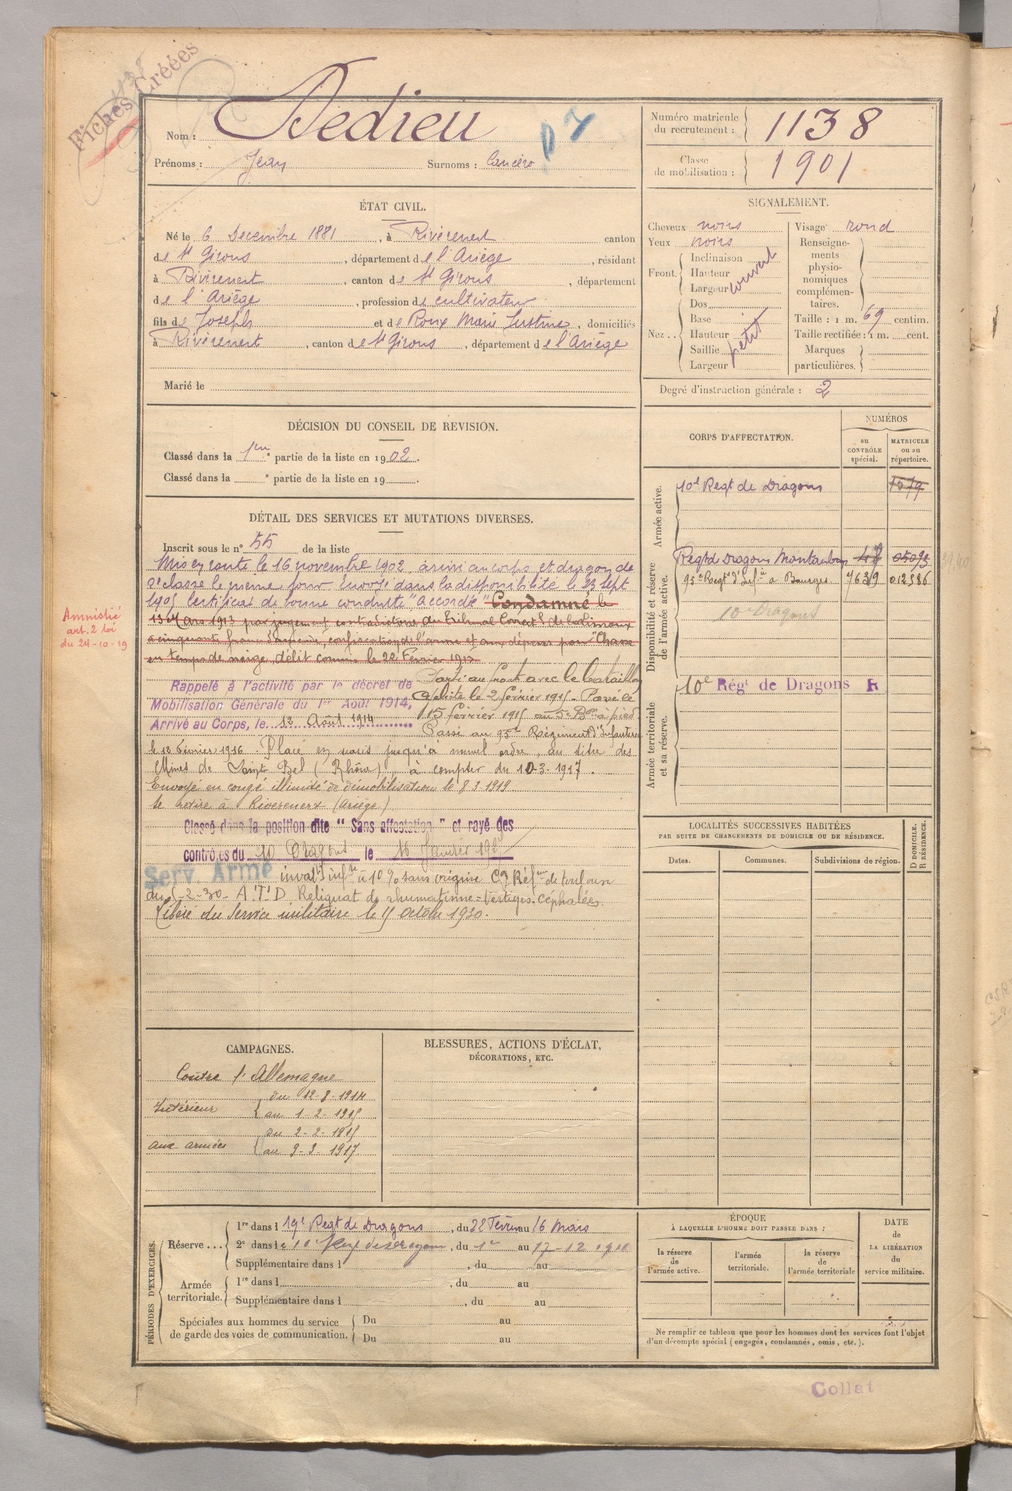 Fiches Créées
Nom : Dedieu
Prénoms : Jean Surnoms :
Numéro matricule du recrutement : 1138
Classe de mobilisation : 1901
ÉTAT CIVIL.
Né le 6 Decembre 1881, à Rivèrenert canton
de St Girons, département de l'Ariège, résidant
à Rivèrenert, canton de St Girons, département
de l'Ariège, profession de cultivateur
fils de Joseph et de Roux Marie Justine, domiciliés
à Rivèrenert, canton de St Girons, département de l'Ariège
Marié le
SIGNALEMENT.
Cheveux noirs
Yeux noirs
Front. Inclinaison Hauteur Largeur couvert
Nez.. Dos Base Hauteur Saillie Largeur petit
Visage rond
Renseignements physionomiques complémentaires.
Taille : 1 m. 69 centim.
Taille rectifiée : 1 m. cent.
Marques particulières.
Degré d'instruction générale : 2
DÉCISION DU CONSEIL DE REVISION.
Classé dans la 1re partie de la liste en 1902.
Classé dans la partie de la liste en 19
DÉTAIL DES SERVICES ET MUTATIONS DIVERSES.
Inscrit sous le n° 55 de la liste
Mis en route le 16 novembre 1902, arrivé au corps et dragon de
2e classe le même jour. Envoyé dans la disponibilité le 23 sept
1905 Certificat de bonne conduite "Accordé" Condamné le
13 Mars 1913 par jugement contradictoire du Tribunal Correctl de
à cinquante francs d'amende, confiscation de l'arme et aux dépens pour "Chasse
en temps de neige, délit commis le 22 Février 1913
Amnistié
art. 2 loi
du 24-10-19
Rappelé à l'activité par le décret de
Mobilisation Générale du 1er Août 1914,
Arrivé au Corps, le 12 Août 1914
Parti au front avec le bataillon
cycliste le 2 février 1915. Passé le
15 février 1915 au 5e Bon à pied
Passé au 95e Régiment d'Infanterie
le 10 février 1916. Placé en sursis jusqu'à nouvel ordre, au titre des
Mines de Saint Bel (Rhône), à compter du 10-3-1917.
Envoyé en congé illimité de démobilisation le 8 3 1919
Se retire à Rivèrenert (Ariège)
Classé dans la position dite "Sans affectation" et rayé des
contrôles du 10 Dragons le 16 Janvier
Serv. Armé invalté infre à 10 % sans origine CS Réfme de Toulouse
du -2-30. A.T.D Reliquat de rhumatisme = Vertiges, céphalées.
Libéré du Service militaire le 15 octobre 1930.
CORPS D'AFFECTATION.
NUMÉROS
au CONTRÔLE spécial.
MATRICULE ou au répertoire.
Armée active.
10e Regt de Dragons
Disponibilité et réserve de l'armée active.
Regt de Dragons Montauban
95e Regt d'Infie à Bourges 7639 012586
10e Dragons
Armée territoriale et sa réserve.
10e Régt de Dragons R
LOCALITÉS SUCCESSIVES HABITÉES
PAR SUITE DE CHANGEMENTS DE DOMICILE OU DE RÉSIDENCE.
Dates. Communes. Subdivisions de région.
D DOMICILE. R RÉSIDENCE.
CAMPAGNES.
Contre l'Allemagne
Intérieur du 12-8-1914
au 1-2-1915
aux armées du 2-2-1915
au 9-3-1917
BLESSURES, ACTIONS D'ÉCLAT,
DÉCORATIONS, ETC.
PÉRIODES D'EXERCICES.
Réserve... 1re dans l 19e Regt de Dragons, du 22 Février au 16 Mars
2e dans l , du 1er au 17-12
Supplémentaire dans l , du au
Armée territoriale. 1re dans l , du au
Supplémentaire dans l , du au
Spéciales aux hommes du service
de garde des voies de communication. Du au
Du au
ÉPOQUE
À LAQUELLE L'HOMME DOIT PASSER DANS :
la réserve de l'armée active.
l'armée territoriale.
la réserve de l'armée territoriale
DATE DE LA LIBÉRATION du service militaire.
Ne remplir ce tableau que pour les hommes dont les services font l'objet
d'un décompte spécial (engagés, condamnés, omis, etc.).
Collat